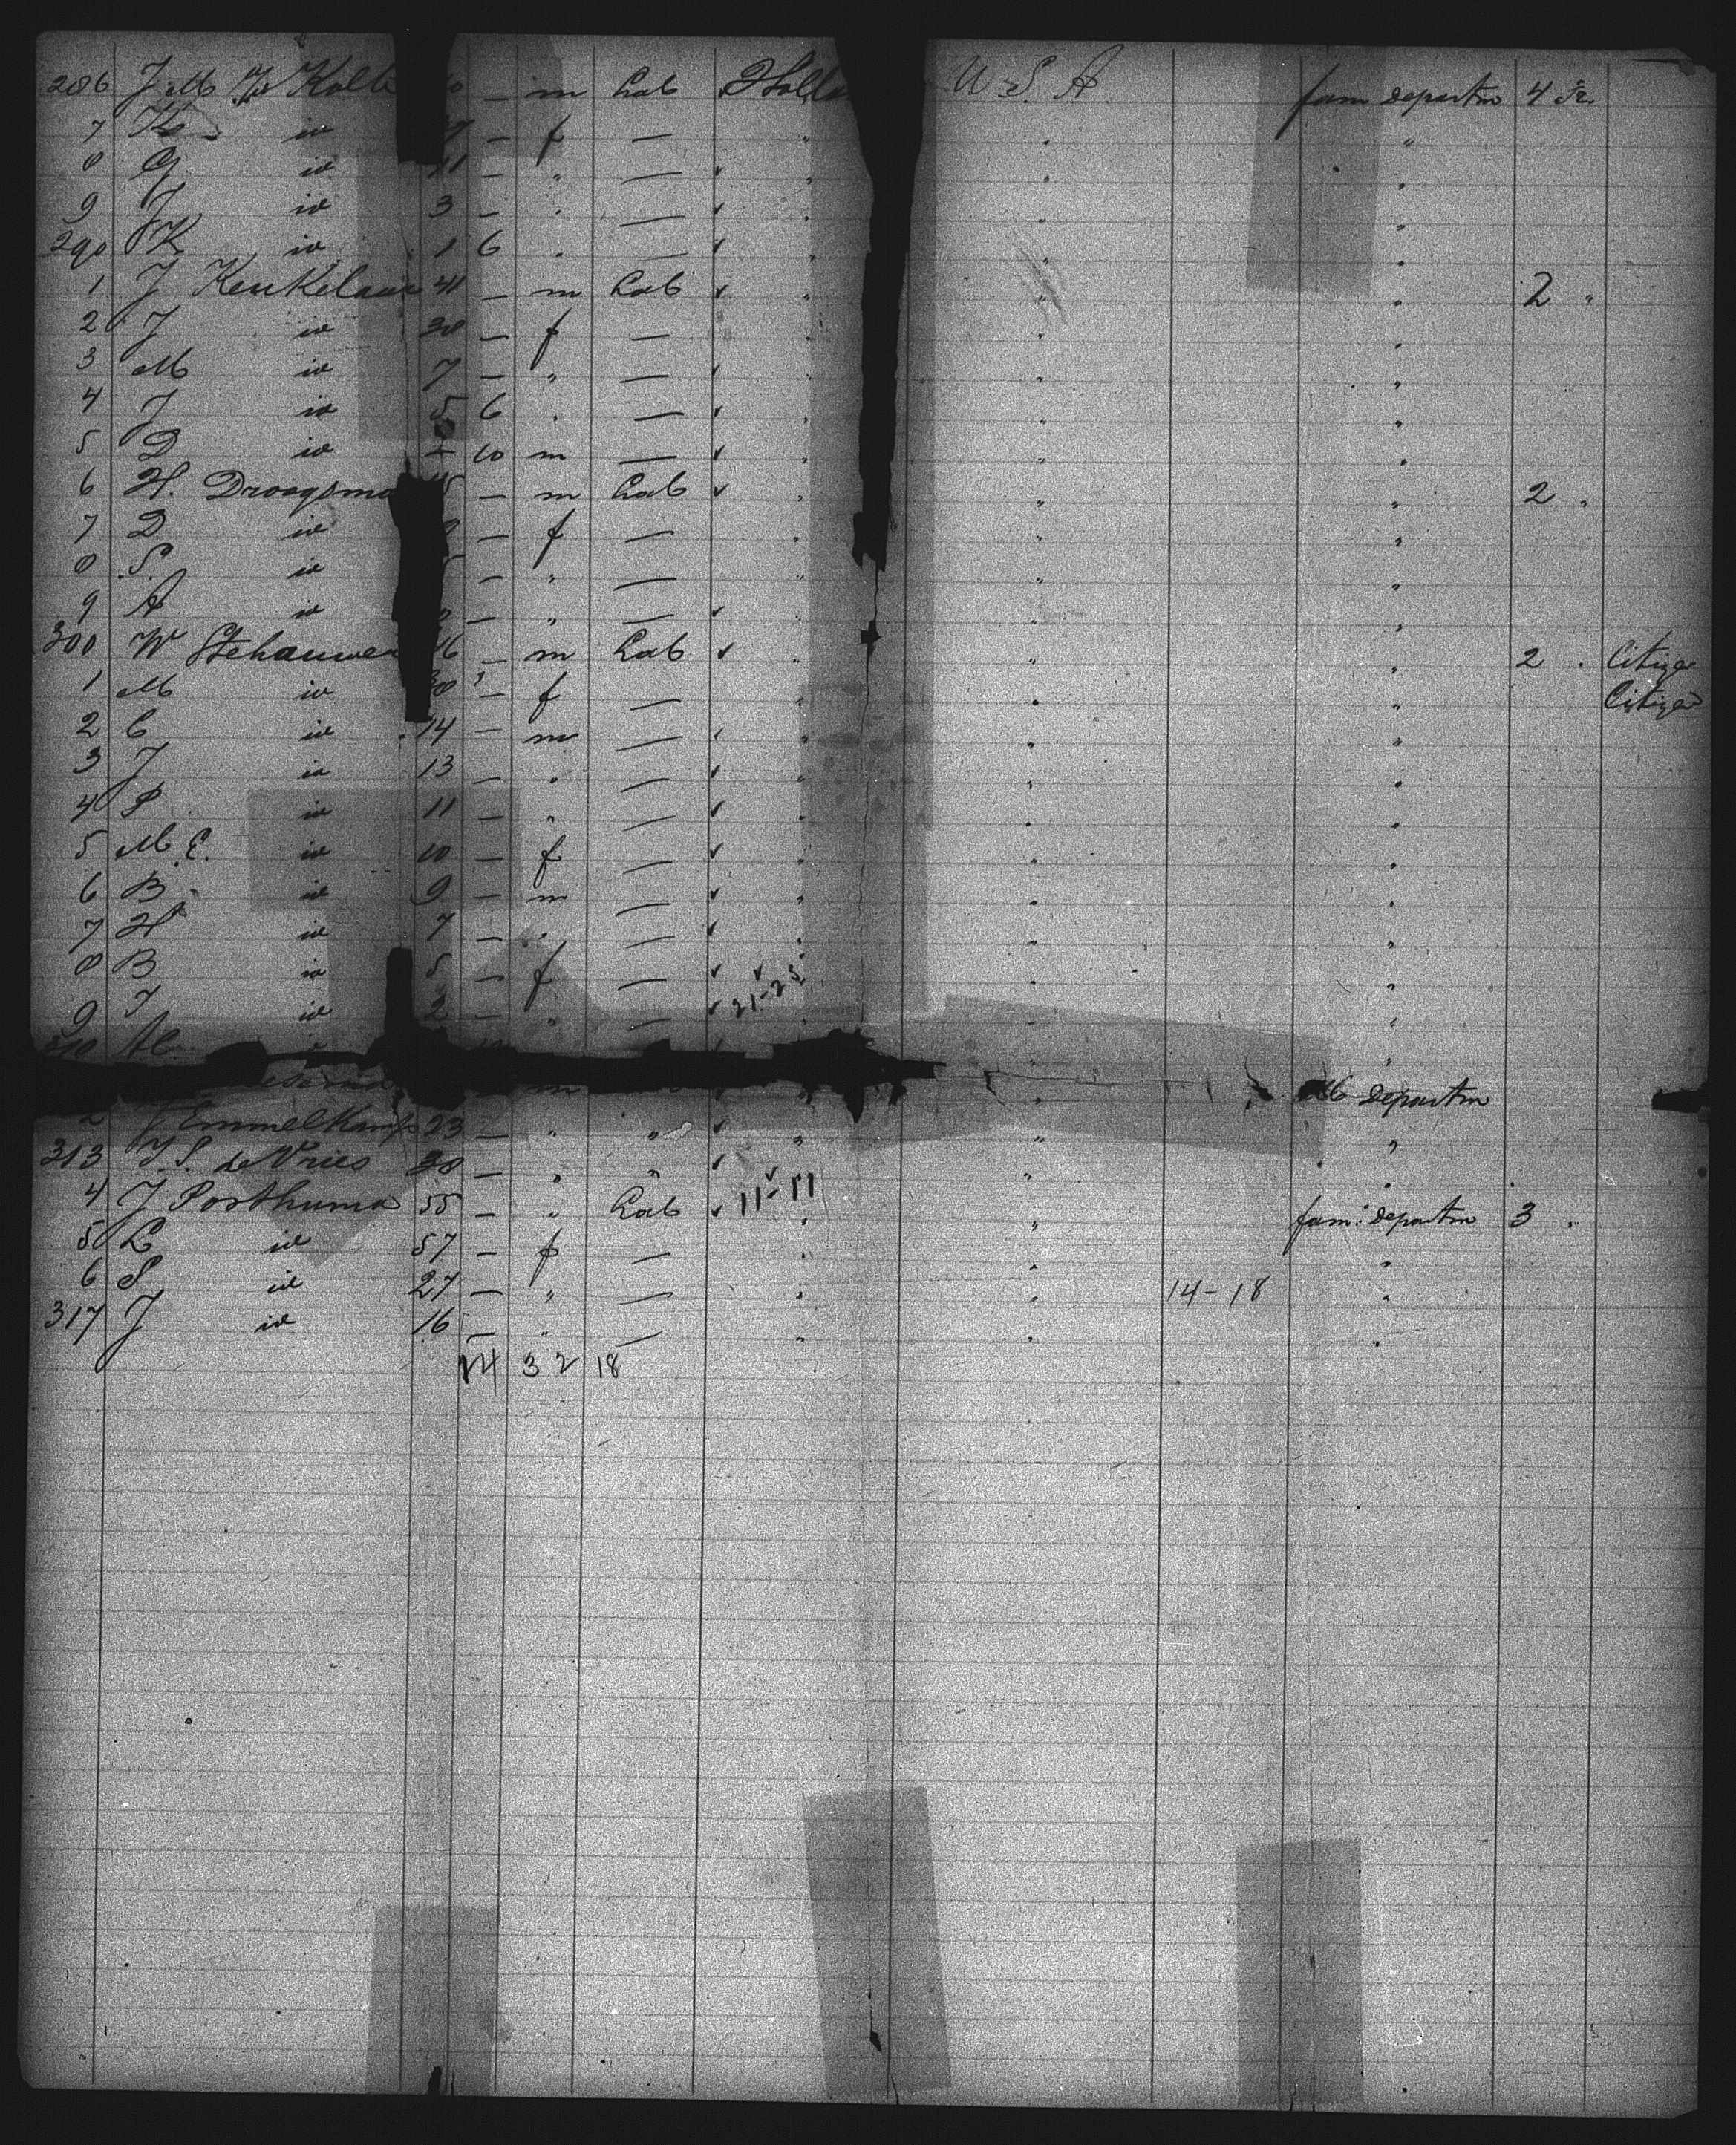 286 J M W Kolk — m Lab Holl U.S.A. fam departm 4 Fr.
7 K io — f — " " "
8 G io 11 — " — " " "
9 J io 3 — " — " " "
290 K io 1 6 " — " " "
1 J Keukelaar 41 — m Lab " " " 2 "
2 J io 38 — f — " " "
3 M io 7 — " — " " "
4 J io 5 6 " — " " "
5 D io — 10 m — " " "
6 H. Droogsma — m Lab " " " 2 "
7 D io — f — " " "
8 S. io — " — " " "
9 A io — " — " " "
300 W Stehouwer 46 — m Lab " " " 2 " Citizen
1 M io 38 — f — " " " Citizen
2 C io 14 — m — " " "
3 J io 13 — " — " " "
4 P io 11 — " — " " "
5 M. E. io 10 — f — " " "
6 B io 9 — m — " " "
7 H io 7 — " — " " "
8 B io 5 — f — " " "
9 J io — " — 21-25 " "
310 "
m " departm
2 J Emmelkamp 23 — " " " " "
313 J. S. de Vries 38 — " " " " "
4 J Posthuma 55 — " Lab 11-11 " " fam: departm 3 "
5 L io 57 — f — " " "
6 S io 27 — " — " " 14-18 "
317 J io 16 — " — " " "
14 3 2 18